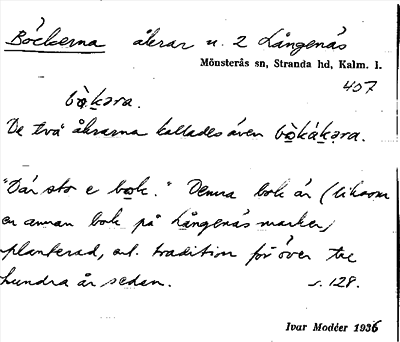 Böckerna åkrar u. 2 Långenäs
Mönsterås sn, Stranda hd, Kalm. l.
457
bö̀kəra.
De två åkrarna kallades även bö̀kåkəra.
"Där sto e bok." Denna bok är (liksom
en annan bok på Långenäs marker)
planterad, enl. tradition för över tre
hundra år sedan. s. 128.
Ivar Modéer 1936